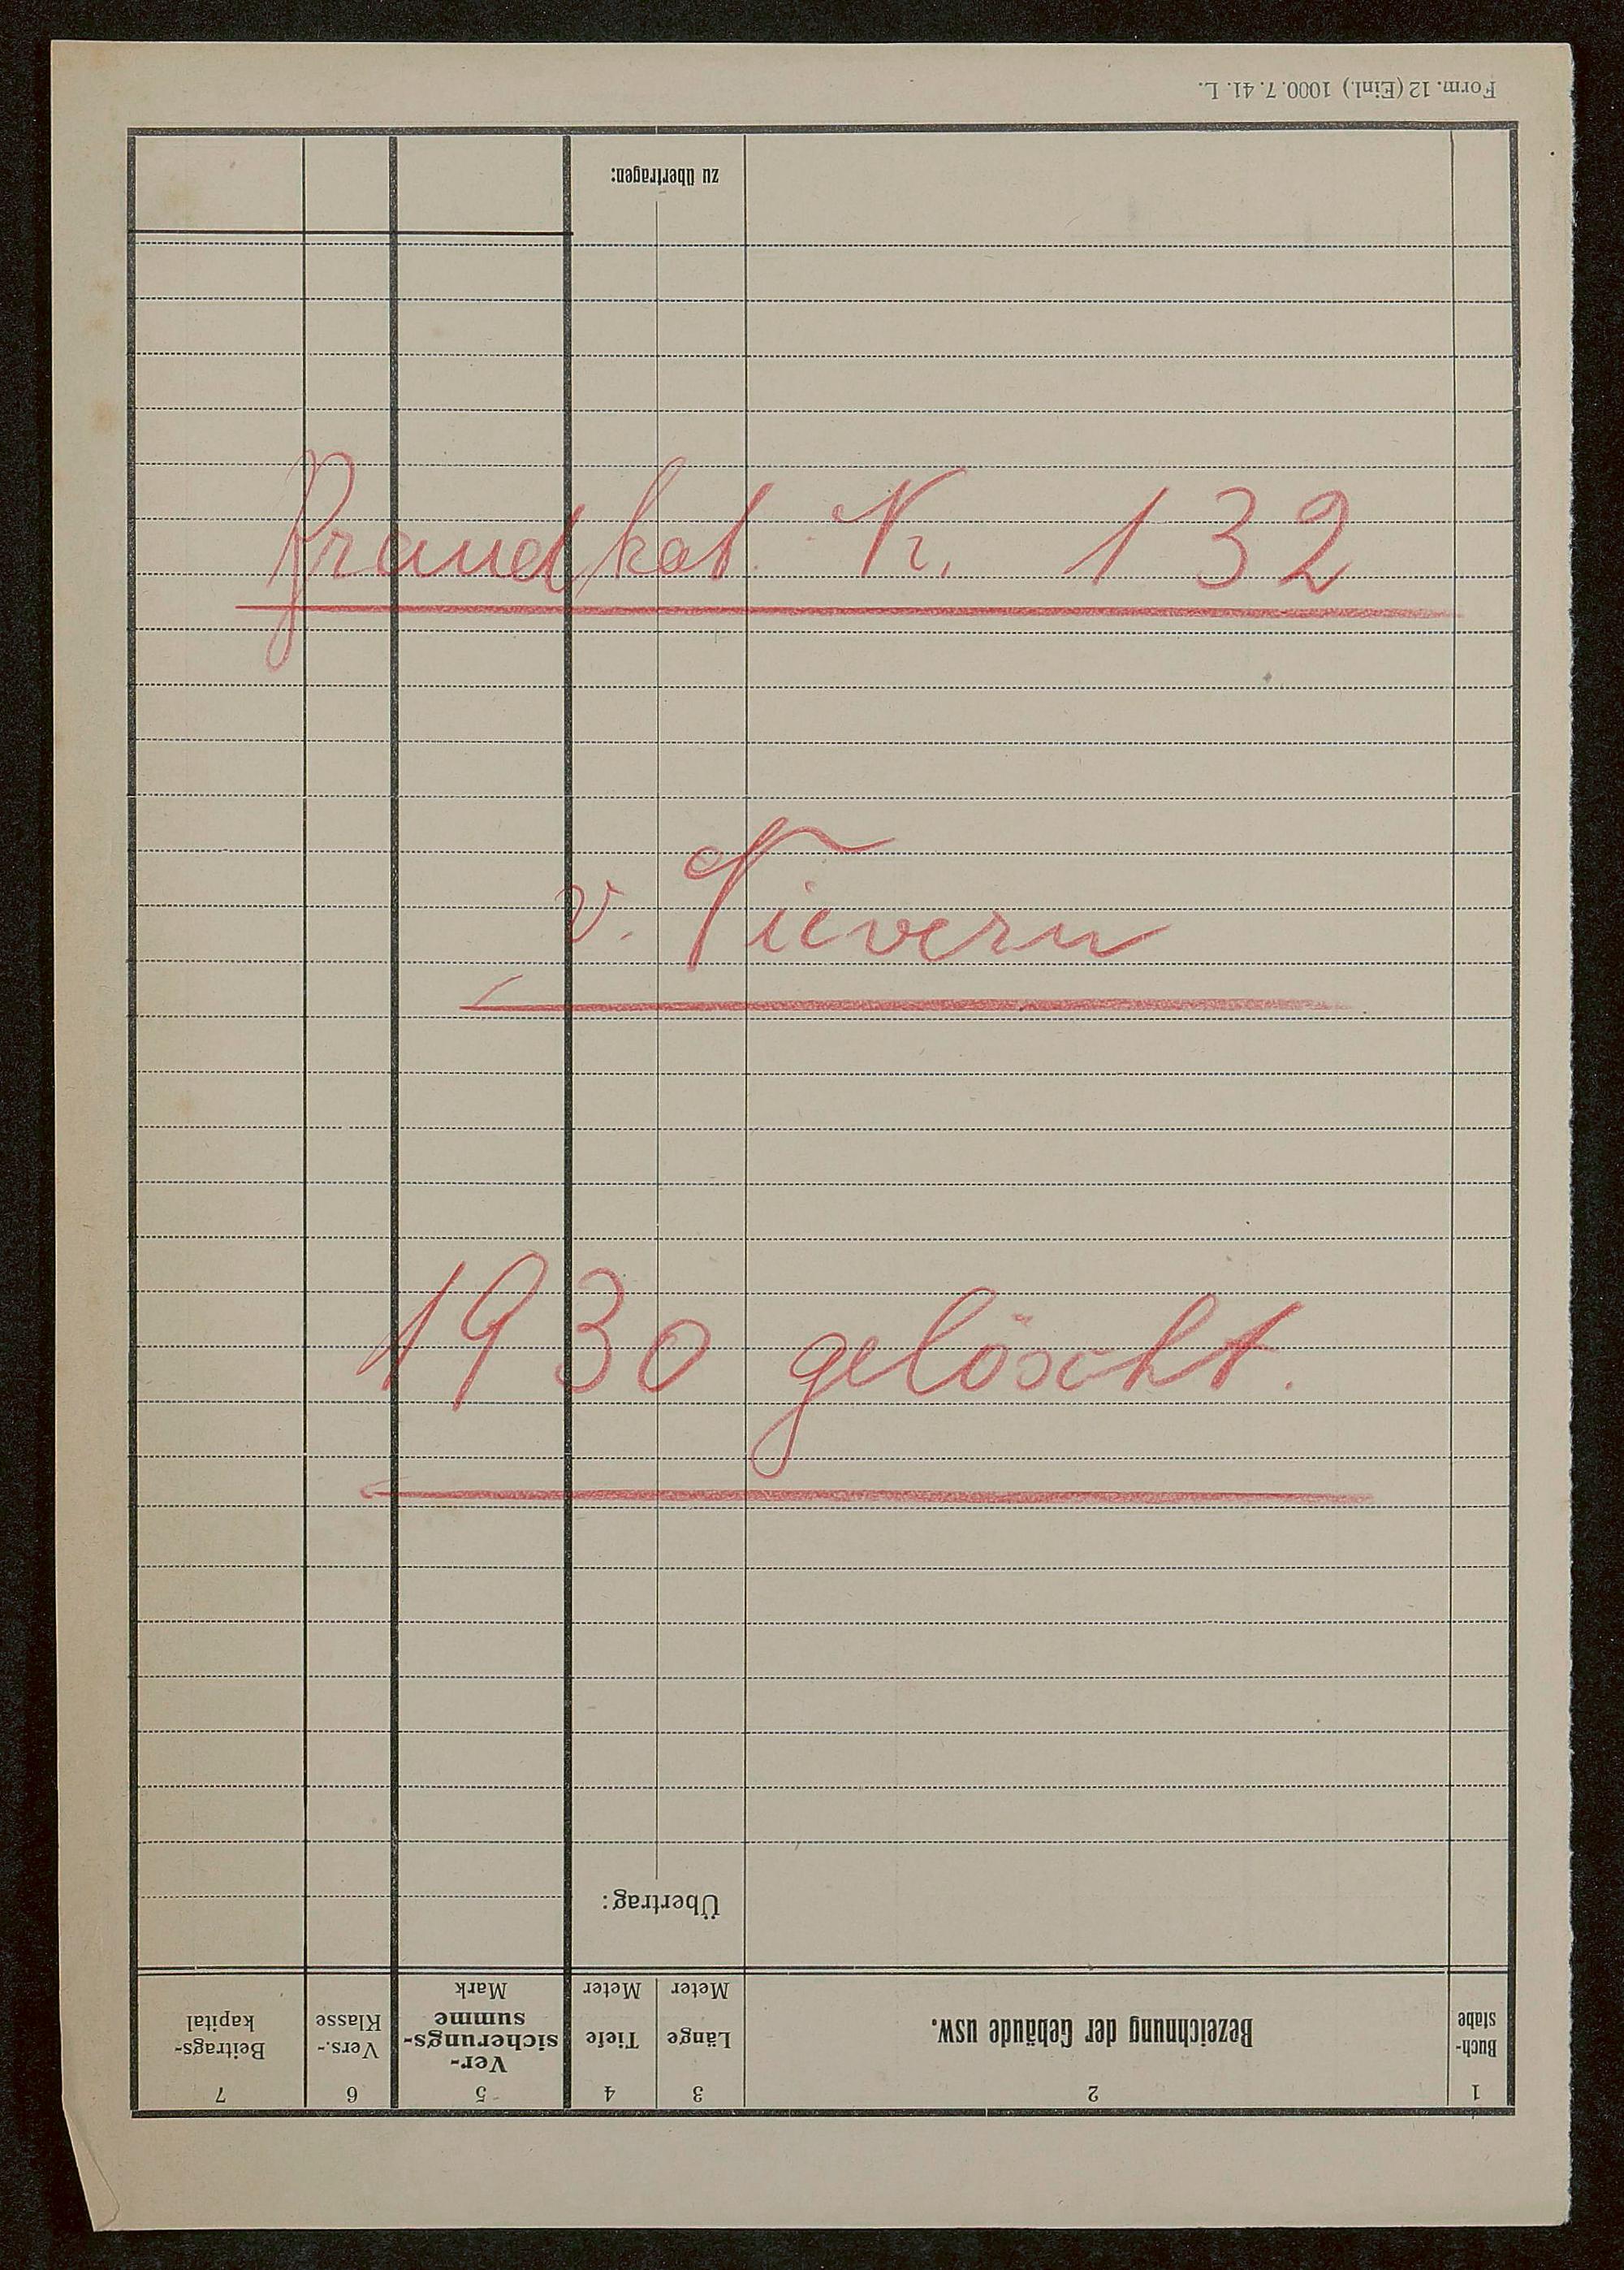 Form. 12 (Einl.) 1000. 7. 41. L.
zu übertragen:
Brandkat. Nr. 132
v. Nievern
1930 gelöscht.
Übertrag:
1 2 3 4 5 6 7
Buch-
stabe
Bezeichnung der Gebäude usw.
Länge
Meter
Tiefe
Meter
Ver-
sicherungs-
summe
Mark
Vers.-
Klasse
Beitrags-
kapital